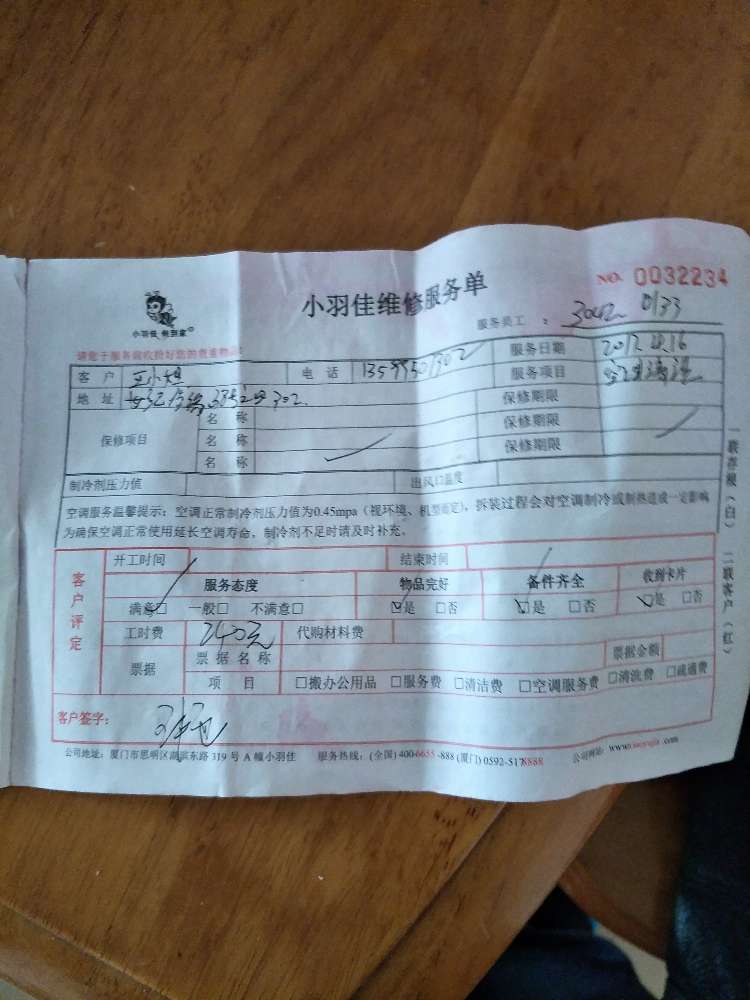 小羽佳 帮到家
小羽佳维修服务单
NO. 0032234
服务员工 : 3042 0133
请您于服务前收检好您的贵重物品
客户 王小姐 电话 服务日期 2017.4.16
地址 服务项目 空调清洗
保修项目 名称 保修期限
名称 保修期限
名称 保修期限
制冷剂压力值 出风口温度
空调服务温馨提示：空调正常制冷剂压力值为0.45mpa（视环境、机型而定），拆装过程会对空调制冷或制热造成一定影响
为确保空调正常使用延长空调寿命，制冷剂不足时请及时补充。
一联存根（白） 二联客户（红）
客户评定
开工时间 结束时间
服务态度 物品完好 备件齐全 收到卡片
满意□ 一般□ 不满意□ □是 □否 □是 □否 □是 □否
工时费 240元 代购材料费
票据 票据名称 票据金额
项目 □搬办公用品 □服务费 □清洁费 □空调服务费 □清洗费 □疏通费
客户签字：
公司地址：厦门市思明区湖滨东路 319 号 A 幢小羽佳 服务热线：(全国) 400-6655-888 (厦门) 0592-5178888 公司网站：www.xiaoyujia.com